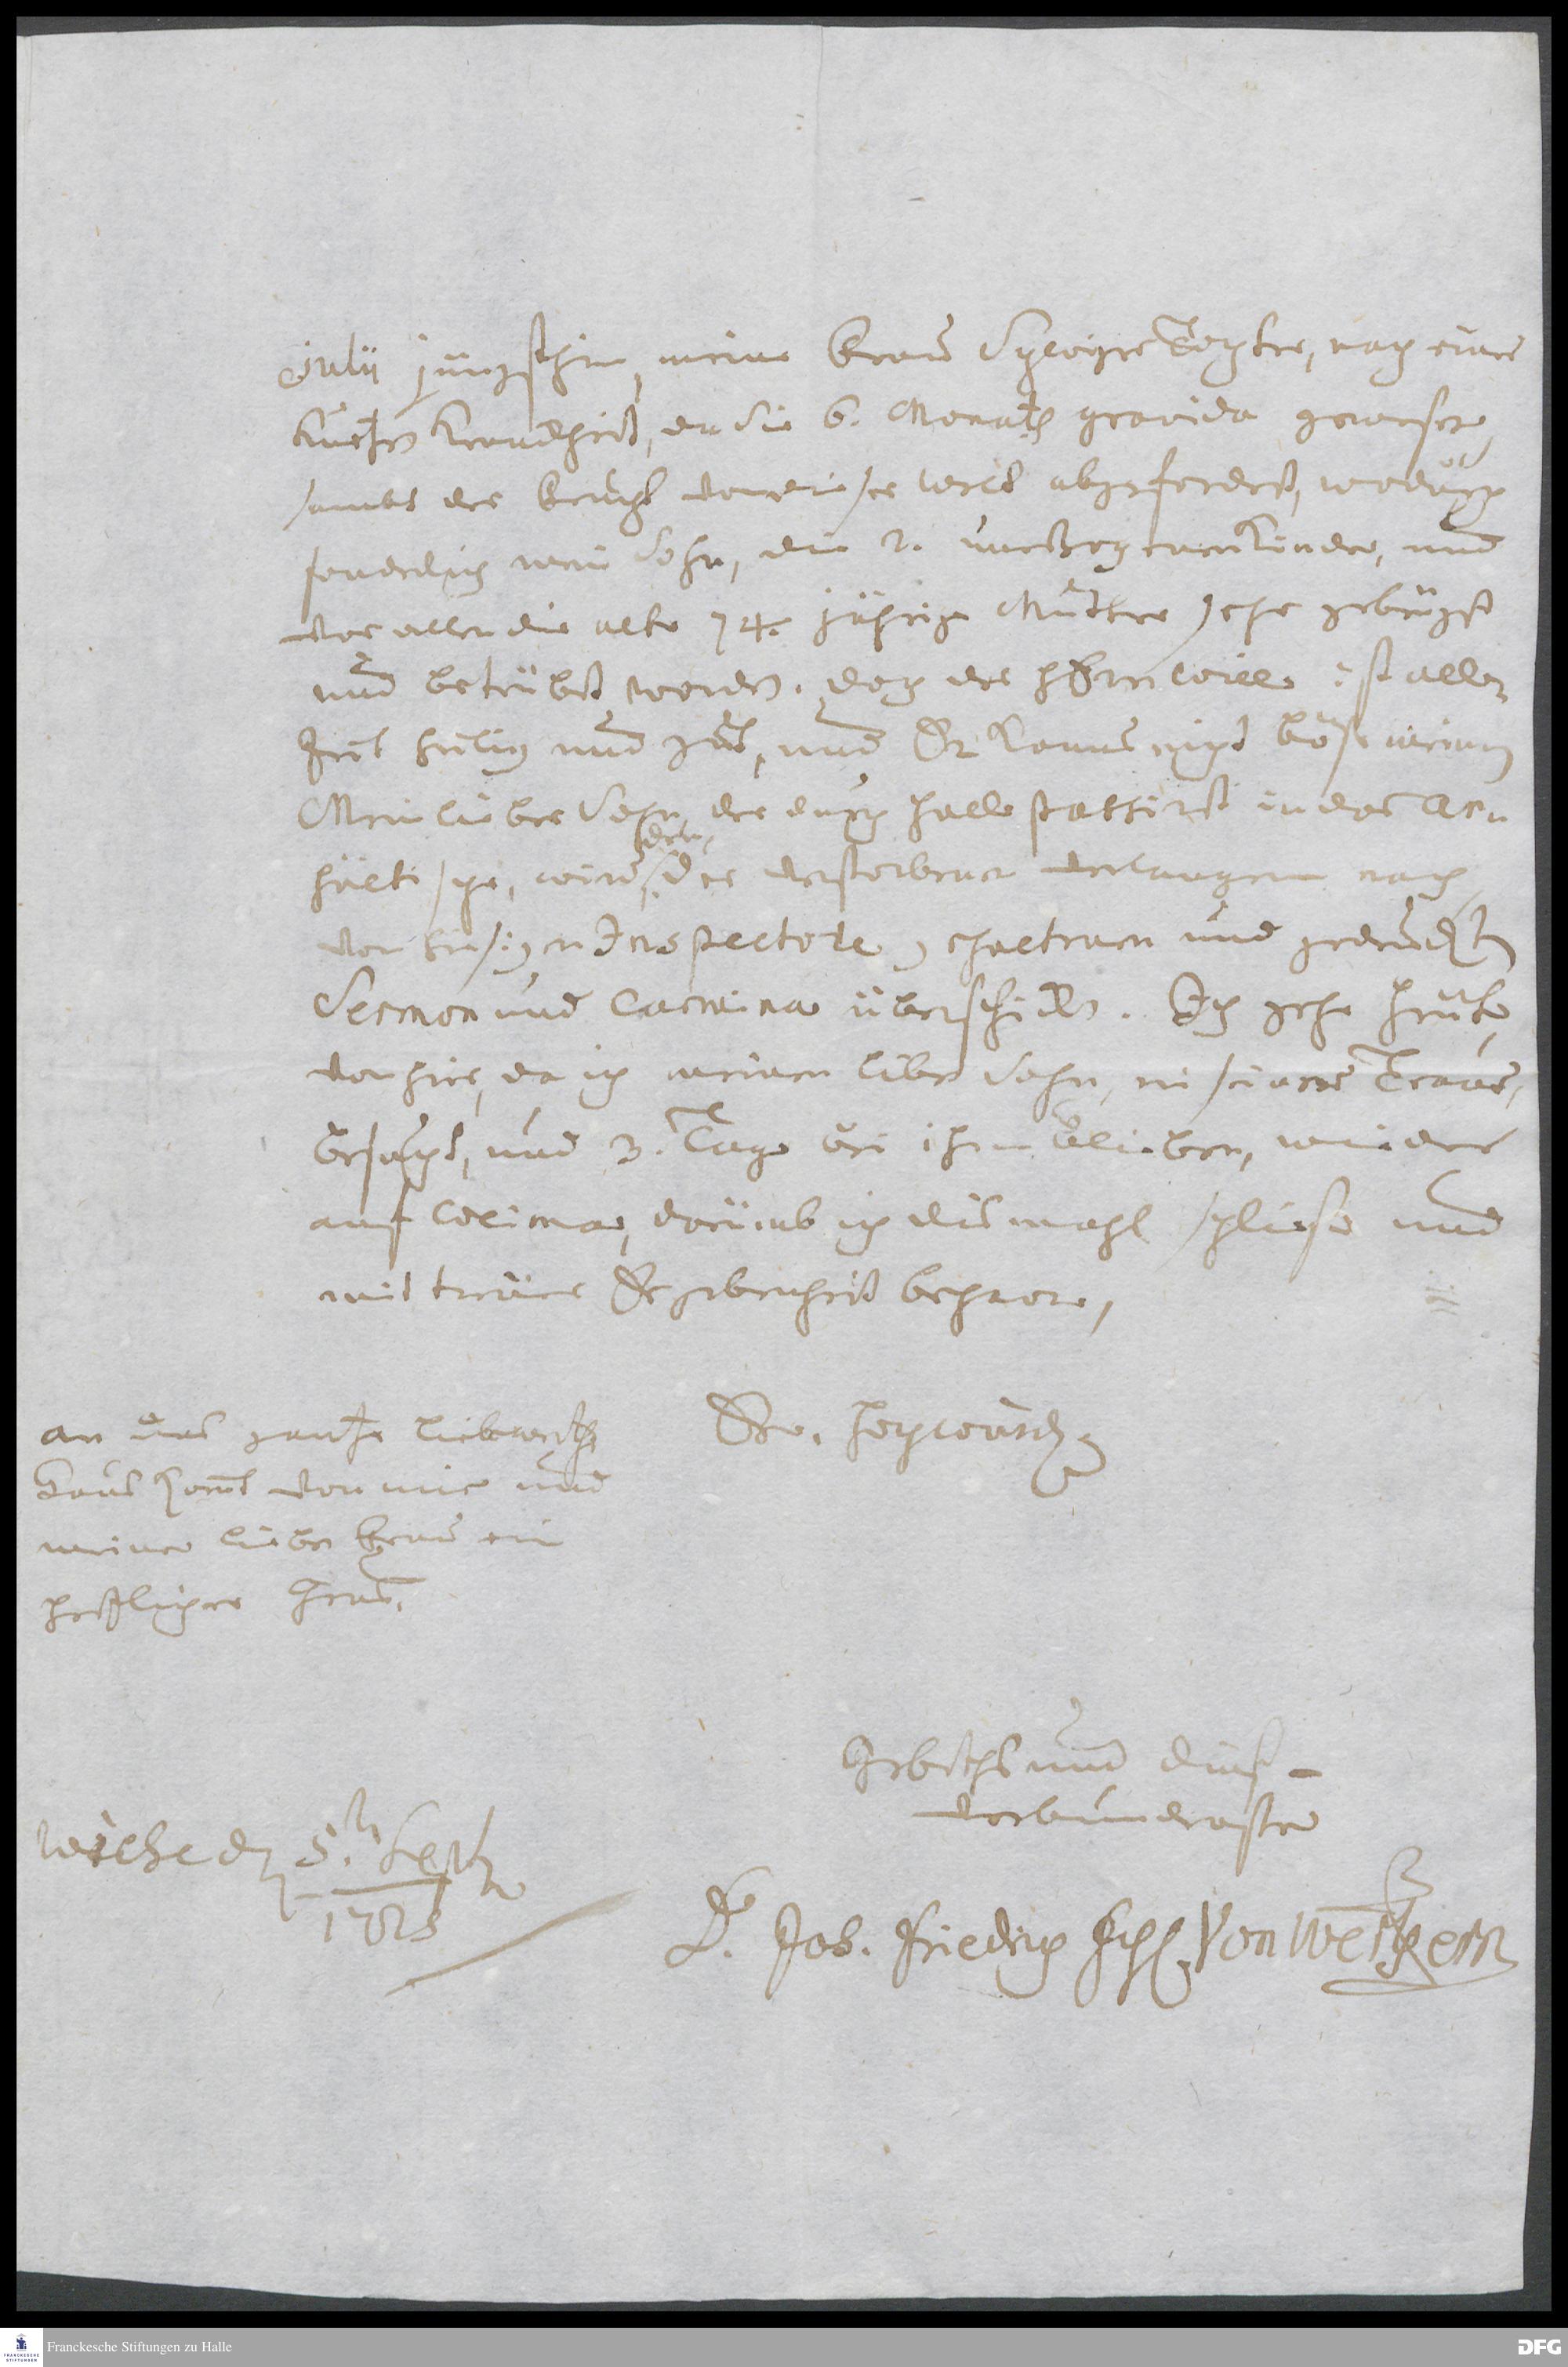 Julii jüngsthin, meine Frau Schwiger Tochter, nach einer
kurtzen Kranckheit, da sie 6. Monath gravida gewesen,
sambt der Frucht von dieser Welt abgefordert, wodurch
sonderlich mein Sohn, die 2. unerzogenen Kinder, und
vor allen die alte 74. jährige Mutter sehr gebeugt
und betrübet worden. doch des HErrn Wille ist alle
Zeit heilig und gut, und Er kans nicht böse meinen
Mein lieber Sohn, der durch Halle passirt in das An
hältische, wird den, der verstorbenen Verlangen nach,
von hiesigen Inspectore gehaltenen und gedruckten
Sermon und Carmina überschicken. Ich gehe heute,
von hier, da ich meinen lieben Sohn, in seiner Trauer,
besucht, und 3. Tage bei ihm blieben, wieder
auf Weimar, darümb ich dismahl schliese und
mit treüer Ergebenheit beharre,
Ew. Hochwürd.
an das gantze liebwerthe
Haus kommt von mir und
meiner lieben Frau ein
hertzlicher Gruß.
Gebeths und dienst-
verbundenster
Wiehe d. 5. Sept.
1725
D. Joh. Friedrich Frh. Von Werthern